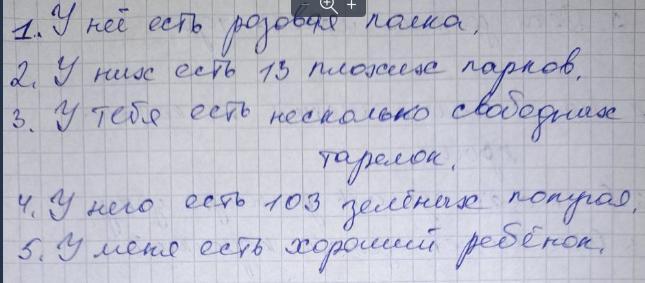 1. У неё есть розовая полка.
2. У них есть 13 плохих парков.
3. У тебя есть несколько свободных
тарелок.
4. У него есть 103 зелёных попугая.
5. У меня есть хороший ребёнок.